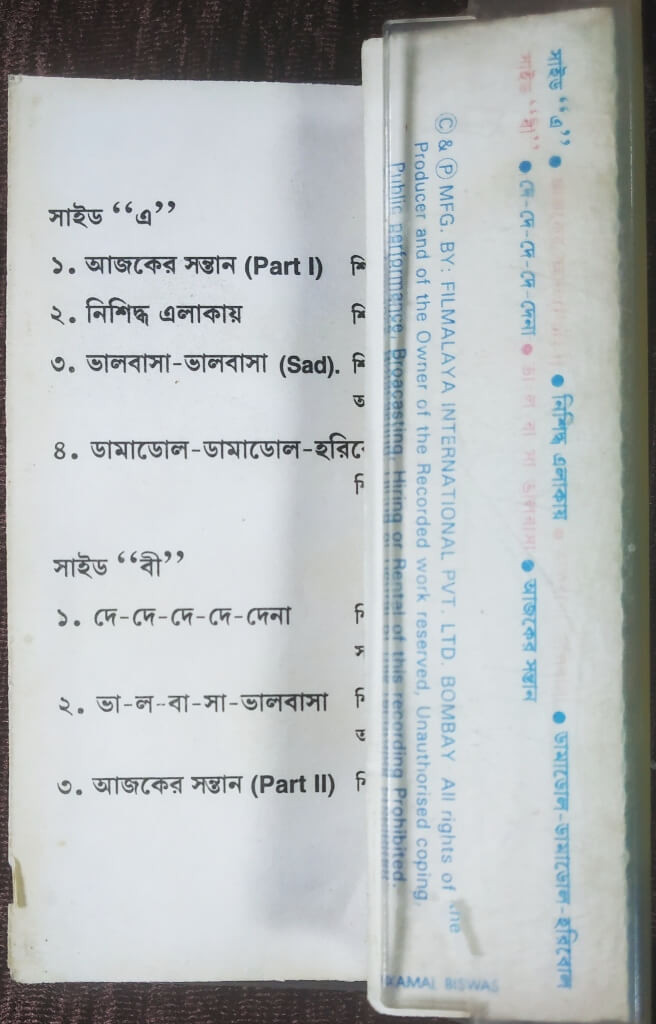 সাইড “এ”
১. আজকের সন্তান (Part I)
২. নিশিদ্ধ এলাকায়
৩. ভালবাসা-ভালবাসা (Sad).
৪. ডামাডোল-ডামাডোল-হরি
সাইড “বী”
১. দে-দে-দে-দে-দেনা
২. ভা-ল-বা-সা-ভালবাসা
৩. আজকের সন্তান (Part II)
সাইড “এ” ● নিশিদ্ধ এলাকায় ● ডামাডোল-ডামাডোল-হরিবোল
সাইড “বী” ● দে-দে-দে-দে-দেনা ● ভা ল বা সা ভালবাসা ● আজকের সন্তান
Ⓒ & Ⓟ MFG. BY: FILMALAYA INTERNATIONAL PVT. LTD. BOMBAY All rights of the
Producer and of the Owner of the Recorded work reserved, Unauthorised coping,
Public performance Broacasting Hiring or Rental of this recording Prohibited.
KAMAL BISWAS